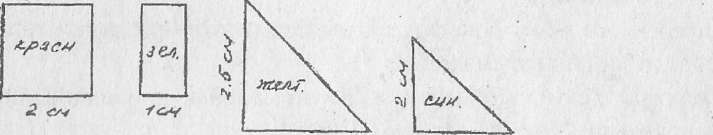 красн
2 см
зел.
1 см
2.5 см
желт.
2 см
син.